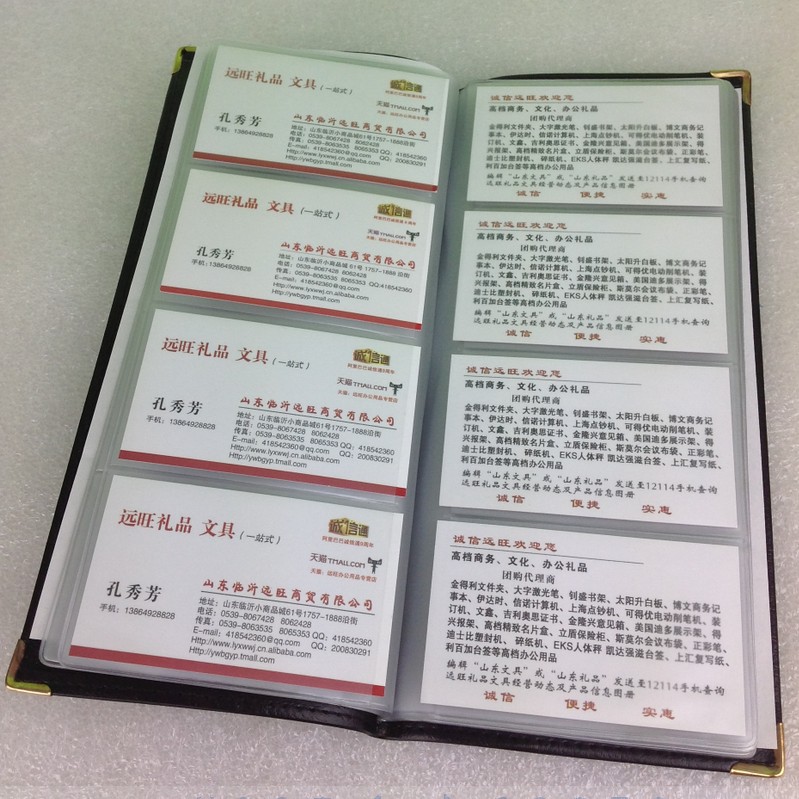 远旺礼品 文具(一站式)
诚信通
阿里巴巴诚信通8周年
天猫 TMALL.com
天猫：远旺办公用品专营店
孔秀芳
手机：13864928828
山东临沂远旺商贸有限公司
地址：山东临沂小商品城61号1757-1888沿街
电话：0539-8067428 8062428
传真：0539-8063535 8065353 QQ：418542360
E-mail：418542360@qq.com QQ：200830291
Http://www.lyxwwj.cn.alibaba.com
Http://ywbgyp.tmall.com
远旺礼品 文具(一站式)
诚信通
阿里巴巴诚信通8周年
天猫 TMALL.com
天猫：远旺办公用品专营店
孔秀芳
手机：13864928828
山东临沂远旺商贸有限公司
地址：山东临沂小商品城 61号 1757-1888 沿街
电话：0539-8067428 8062428
传真：0539-8063535 8065353 QQ:418542360
E-mail：418542360@qq.com
Http://www.lyxwwj.cn.alibaba.com
Http://ywbgyp.tmall.com
远旺礼品 文具(一站式)
诚信通
阿里巴巴诚信通8周年
天猫 TMALL.com
天猫：远旺办公用品专营店
孔秀芳
手机：13864928828
山东临沂远旺商贸有限公司
地址：山东临沂小商品城61号1757-1888沿街
电话：0539-8067428 8062428
传真：0539-8063535 8065353 QQ：418542360
E-mail：418542360@qq.com QQ：200830291
Http://www.lyxwwj.cn.alibaba.com
Http://ywbgyp.tmall.com
远旺礼品 文具(一站式)
诚信通
阿里巴巴诚信通8周年
天猫 TMALL.com
天猫：远旺办公用品专营店
孔秀芳
手机：13864928828
山东临沂远旺商贸有限公司
地址：山东临沂小商品城61号1757-1888沿街
电话：0539-8067428 8062428
传真：0539-8063535 8065353 QQ：418542360
E-mail：418542360@qq.com QQ：200830291
Http://www.lyxwwj.cn.alibaba.com
Http://ywbgyp.tmall.com
诚信远旺欢迎您
高档商务、文化、办公礼品
团购代理商
金得利文件夹、大字激光笔、钊盛书架、太阳升白板、博文商务记
事本、伊达时、信诺计算机、上海点钞机、可得优电动削笔机、装
订机、文鑫、吉利奥思证书、金隆兴意见箱、美国迪多展示架、得
兴报架、高档精致名片盒、立盾保险柜、斯莫尔会议布袋、正彩笔、
迪士比塑封机、碎纸机、EKS人体秤 凯达强滋台签、上汇复写纸、
利百加台签等高档办公用品
编辑“山东文具”或“山东礼品”发送至12114手机查询
远旺礼品文具经营动态及产品信息图册
诚信 便捷 实惠
诚信远旺欢迎您
高档商务、文化、办公礼品
团购代理商
金得利文件夹、大字激光笔、钊盛书架、太阳升白板、博文商务记
事本、伊达时、信诺计算机、上海点钞机、可得优电动削笔机、装
订机、文鑫、吉利奥思证书、金隆兴意见箱、美国迪多展示架、得
兴报架、高档精致名片盒、立盾保险柜、斯莫尔会议布袋、正彩笔、
迪士比塑封机、碎纸机、EKS人体秤 凯达强滋台签、上汇复写纸、
利百加台签等高档办公用品
编辑“山东文具”或“山东礼品”发送至12114手机查询
远旺礼品文具经营动态及产品信息图册
诚信 便捷 实惠
诚信远旺欢迎您
高档商务、文化、办公礼品
团购代理商
金得利文件夹、大字激光笔、钊盛书架、太阳升白板、博文商务记
事本、伊达时、信诺计算机、上海点钞机、可得优电动削笔机、装
订机、文鑫、吉利奥思证书、金隆兴意见箱、美国迪多展示架、得
兴报架、高档精致名片盒、立盾保险柜、斯莫尔会议布袋、正彩笔、
迪士比塑封机、碎纸机、EKS人体秤 凯达强滋台签、上汇复写纸、
利百加台签等高档办公用品
编辑“山东文具”或“山东礼品”发送至12114手机查询
远旺礼品文具经营动态及产品信息图册
诚信 便捷 实惠
诚信远旺欢迎您
高档商务、文化、办公礼品
团购代理商
金得利文件夹、大字激光笔、钊盛书架、太阳升白板、博文商务记
事本、伊达时、信诺计算机、上海点钞机、可得优电动削笔机、装
订机、文鑫、吉利奥思证书、金隆兴意见箱、美国迪多展示架、得
兴报架、高档精致名片盒、立盾保险柜、斯莫尔会议布袋、正彩笔、
迪士比塑封机、碎纸机、EKS人体秤 凯达强滋台签、上汇复写纸、
利百加台签等高档办公用品
编辑“山东文具”或“山东礼品”发送至12114手机查询
远旺礼品文具经营动态及产品信息图册
诚信 便捷 实惠